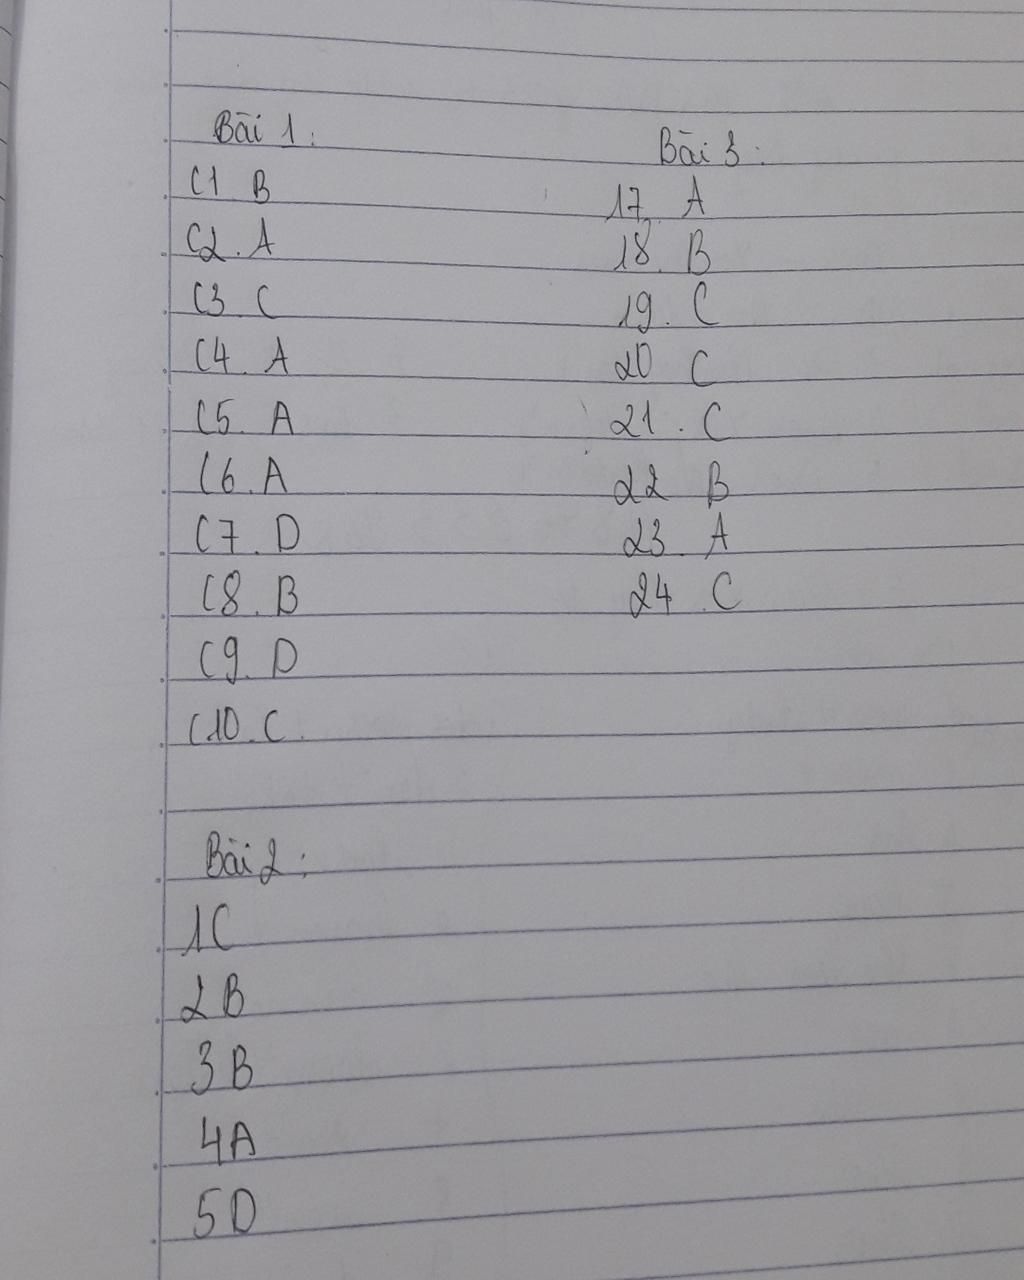 Bài 1:
C1 B
C2. A
C3. C
C4. A
C5. A
C6. A
C7. D
C8. B
C9. D
C10. C.
Bài 2:
1C
2B
3B
4A
5D
Bài 3:
17. A
18. B
19. C
20 C
21. C
22 B
23. A
24. C